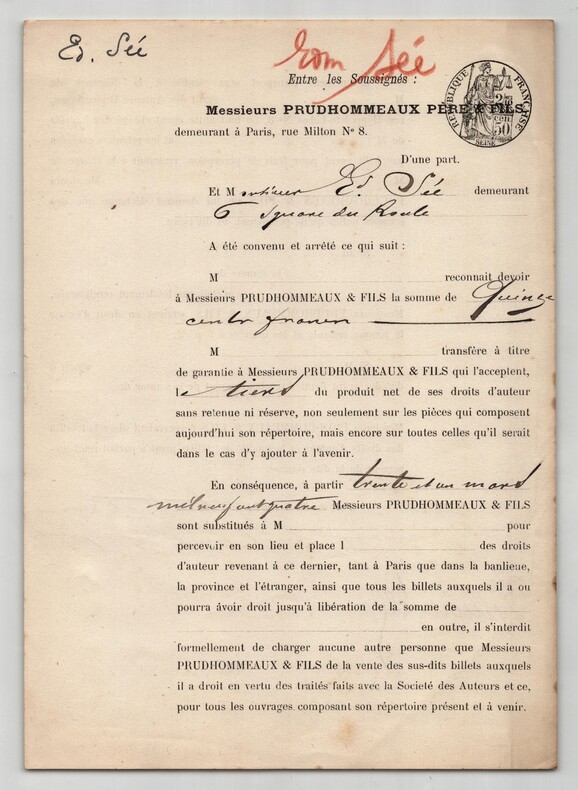 Ed. Sée
rom Sée
Entre les Soussignés :
RÉPUBLIQUE FRANÇAISE
2 fr
cen
50
SEINE
Messieurs PRUDHOMMEAUX PÈRE & FILS
demeurant à Paris, rue Milton Nº 8.
D'une part.
Et Monsieur Ed Sée demeurant
6 Square du Roule
A été convenu et arrêté ce qui suit :
M reconnait devoir
à Messieurs PRUDHOMMEAUX & FILS la somme de Quinze
cents francs
M transfère à titre
de garantie à Messieurs PRUDHOMMEAUX & FILS qui l'acceptent,
le tiers du produit net de ses droits d'auteur
sans retenue ni réserve, non seulement sur les pièces qui composent
aujourd'hui son répertoire, mais encore sur toutes celles qu'il serait
dans le cas d'y ajouter à l'avenir.
En conséquence, à partir trente et un mars
mil neuf cent quatre Messieurs PRUDHOMMEAUX & FILS
sont substitués à M pour
percevoir en son lieu et place l des droits
d'auteur revenant à ce dernier, tant à Paris que dans la banlieue,
la province et l'étranger, ainsi que tous les billets auxquels il a ou
pourra ávoir droit jusqu'à libération de la somme de
en outre, il s'interdit
formellement de charger aucune autre personne que Messieurs
PRUDHOMMEAUX & FILS de la vente des sus-dits billets auxquels
il a droit en vertu des traités faits avec la Societé des Auteurs et ce,
pour tous les ouvrages composant son répertoire présent et à venir.